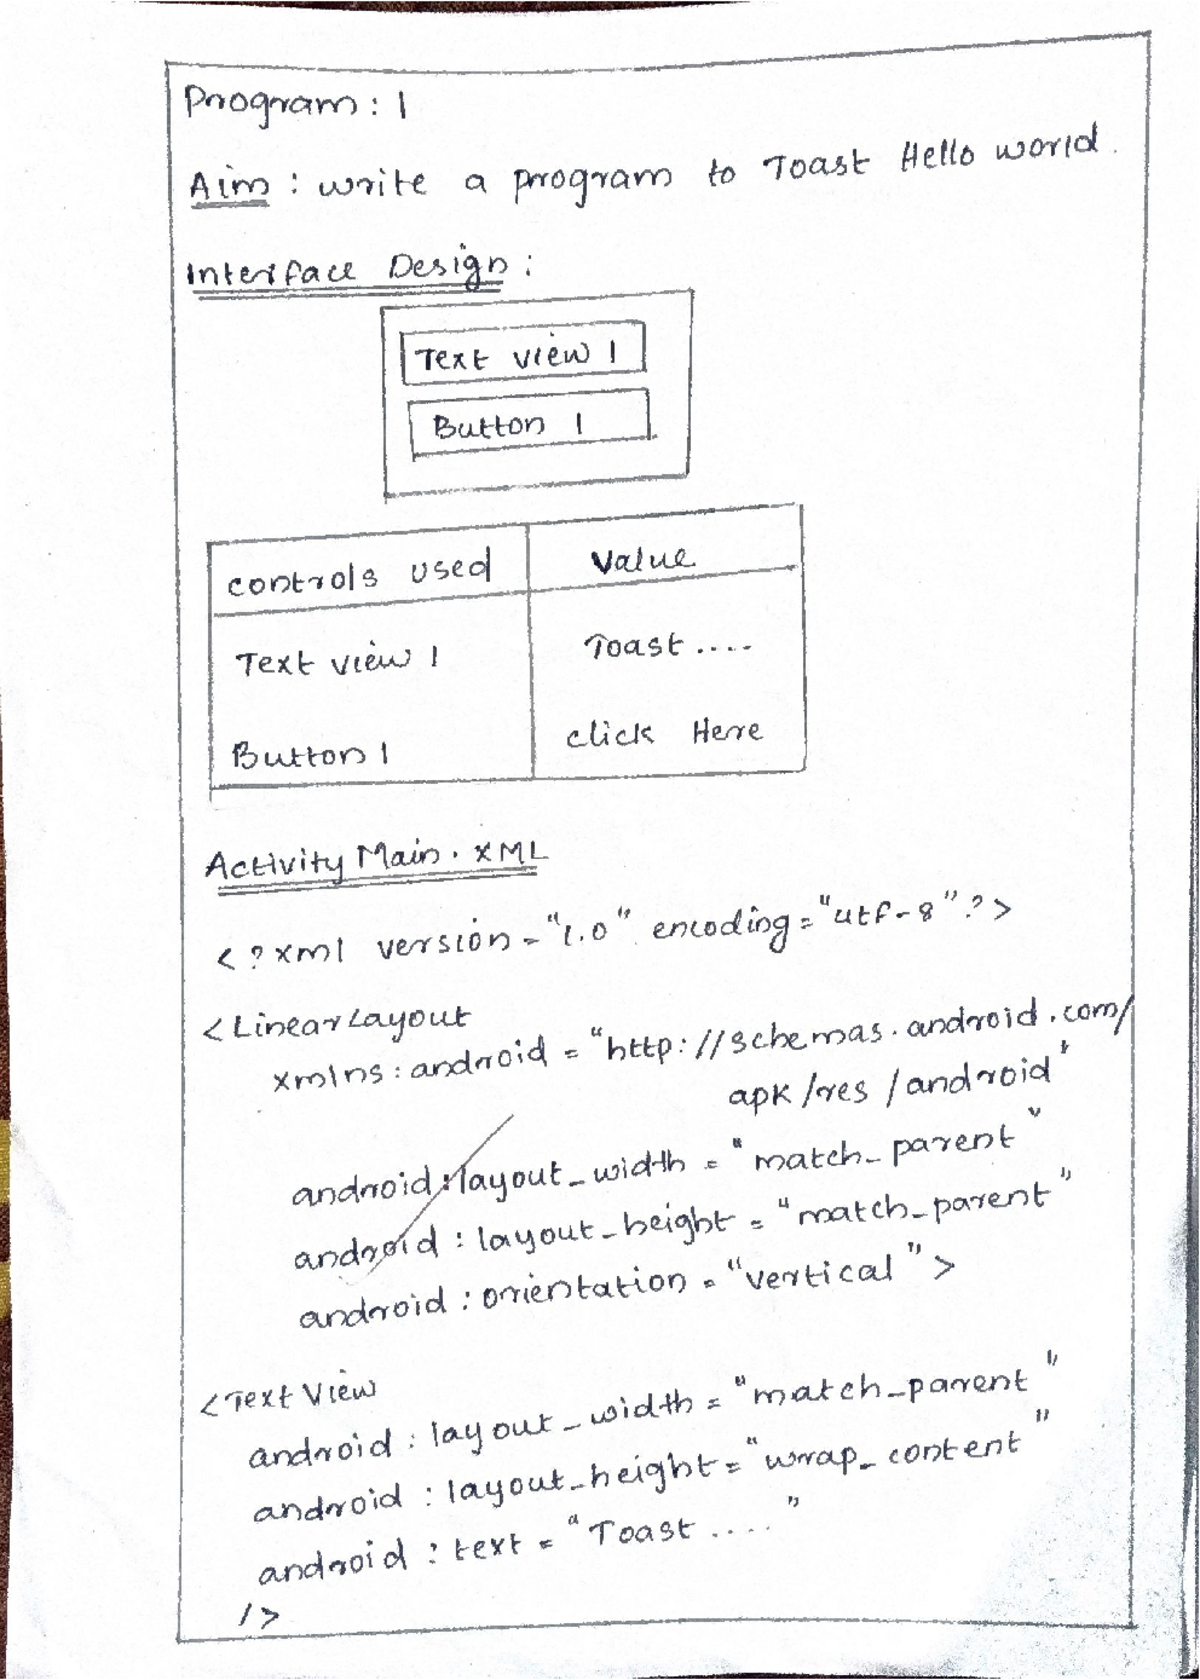 Program : 1
Aim : write a program to Toast Hello world.
Interface Design :
Text view 1
Button 1
controls used Value
Text view 1 Toast ....
Button 1 click Here
Activity Main . XML
<?xml version = "1.0" encoding = "utf-8" ?>
<LinearLayout
xmlns : android = "http://schemas.android.com/
apk/res/android"
android : layout_width = "match_parent"
android : layout_height = "match_parent"
android : orientation = "vertical">
<Text View
android : layout_width = "match_parent"
android : layout_height = "wrap_content"
android : text = "Toast ...."
/>